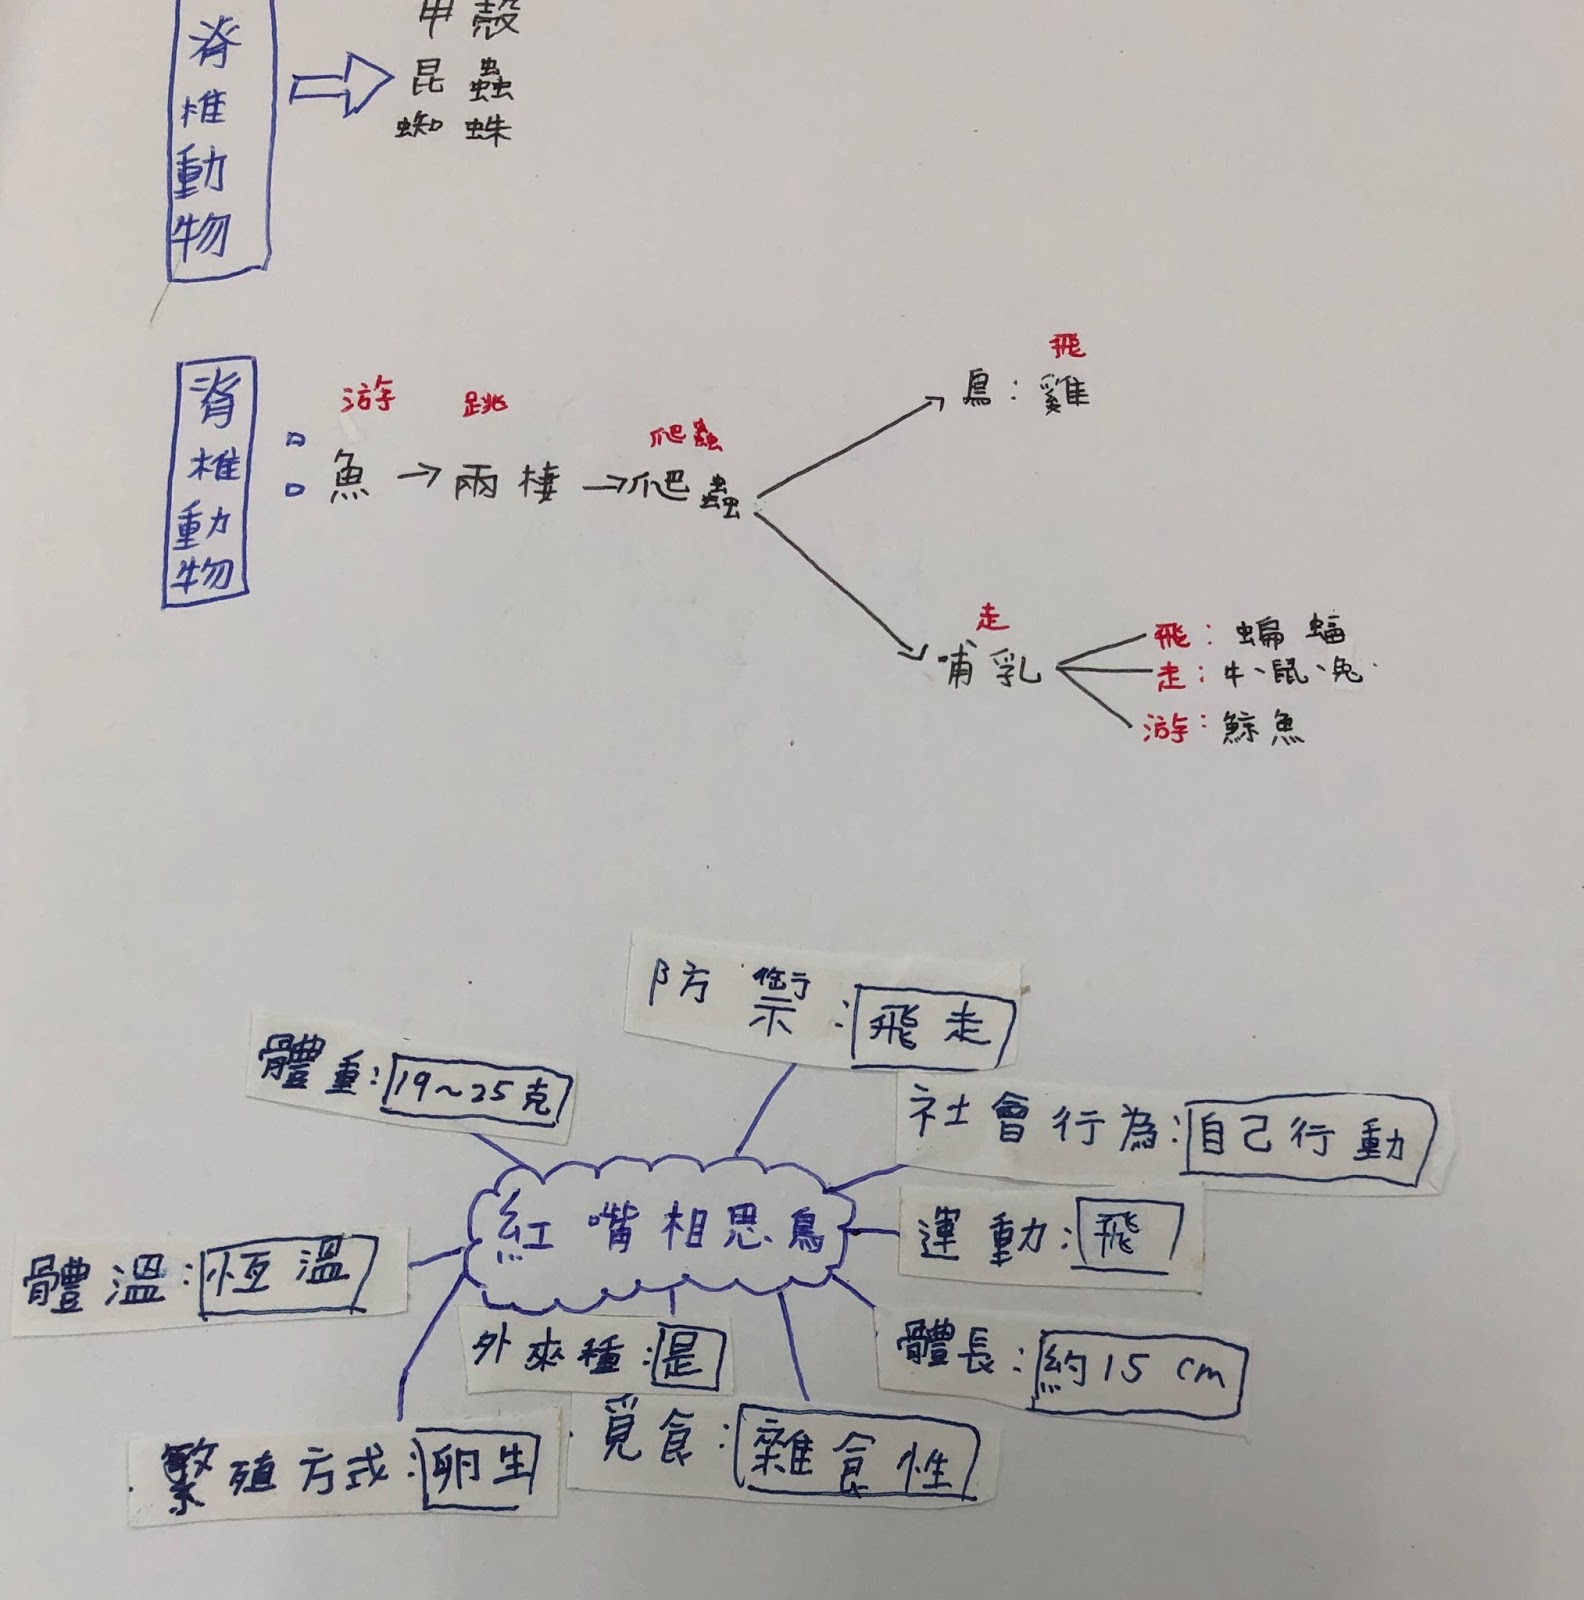 脊椎動物
甲殼
昆蟲
蜘蛛
脊椎動物：
游
魚→
跳
兩棲→
爬蟲
爬蟲
飛
鳥：雞
走
哺乳
飛：蝙蝠
走：牛、鼠、兔
游：鯨魚
防禦：飛走
體重：19~25克
社會行為：自己行動
紅嘴相思鳥
運動：飛
體溫：恆溫
外來種：是
體長：約15cm
繁殖方式：卵生
覓食：雜食性